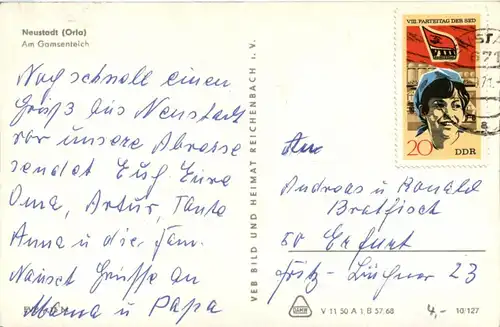 Neustadt (Orla)
Am Gamsenteich
Noch schnell einen
Gruß aus Neustadt
vor unsere Abreise
sendet Euch Eure
Oma, Artur, Tante
Anna u die Fam.
Gruße an
Mama u Papa
VEB BILD UND HEIMAT REICHENBACH i. V.
VIII. PARTEITAG DER SED
20 DDR
An
Andreas u Ronald
Bratfisch
50 Erfurt
Fritz-Büchner 23
V 11 50 A 1 B 57/68
4,-
10/127